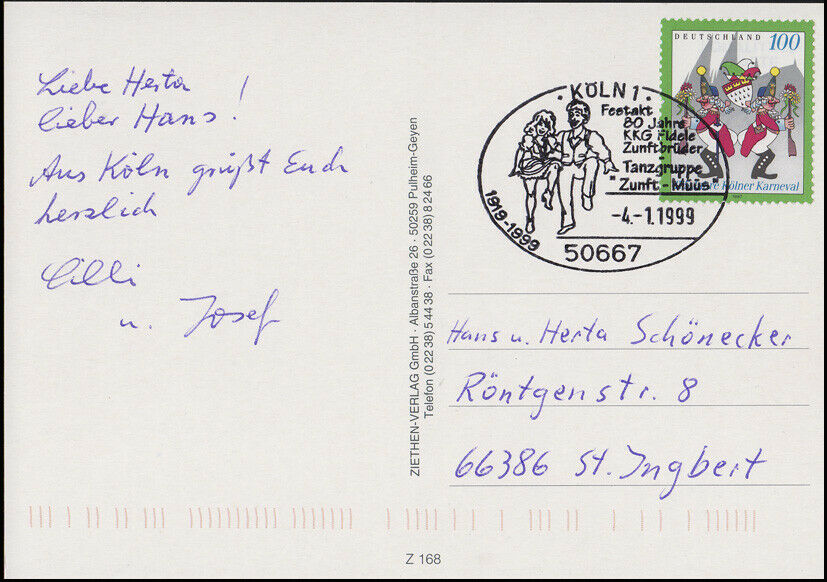 Liebe Herta
lieber Hans!
Aus Köln grüßt Euch
herzlich
Cilli
u. Josef
ZIETHEN-VERLAG GmbH · Albanstraße 26 · 50259 Pulheim-Geyen
Telefon (0 22 38) 5 44 38 · Fax (0 22 38) 8 24 66
DEUTSCHLAND 100
Kölner Karneval
1997
· KÖLN 1 ·
Festakt
80 Jahre
KKG Fidele
Zunftbrüder
Tanzgruppe
"Zunft-Müüs"
1919-1999
-4.-1.1999
50667
Hans u. Herta Schönecker
Röntgenstr. 8
66386 St. Ingbert
Z 168